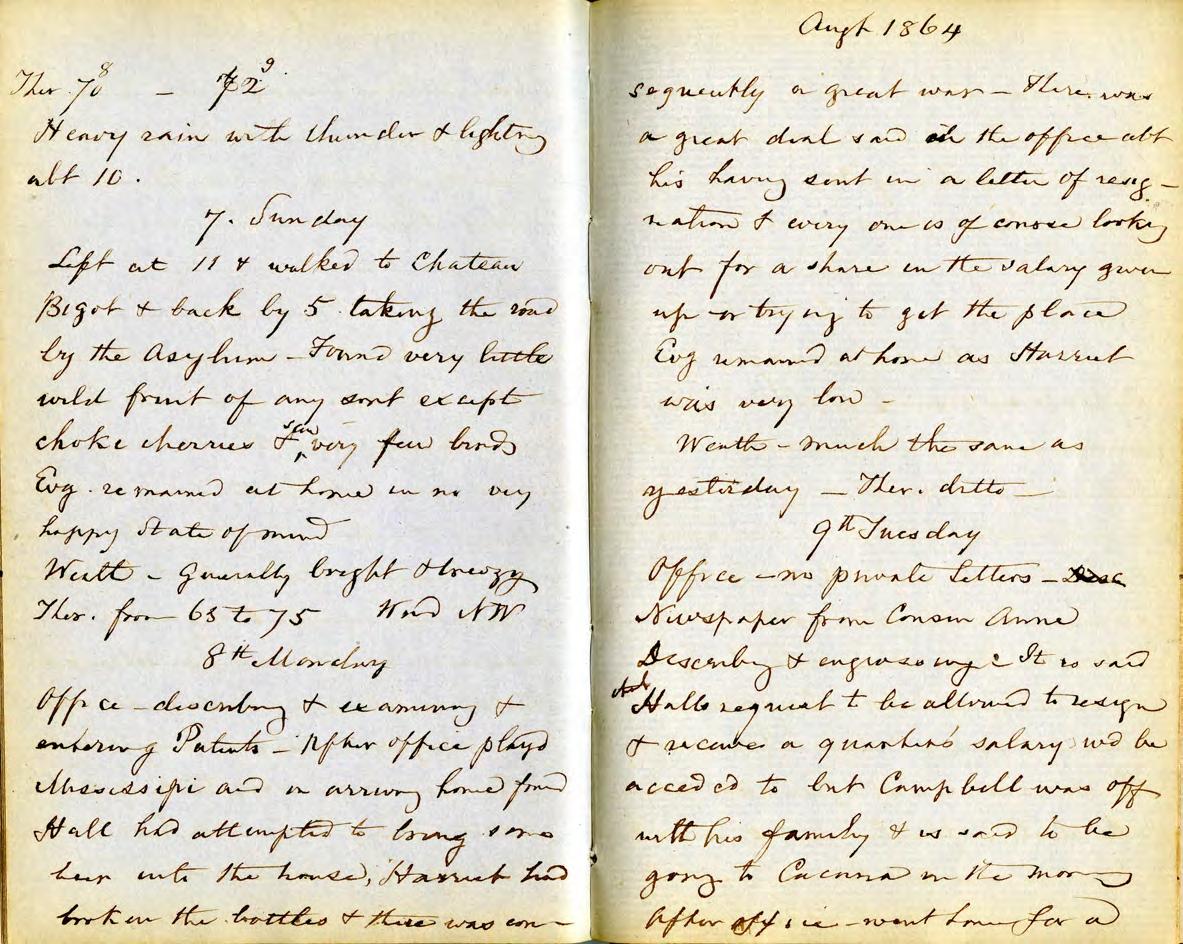 Ther. 78 — 729
Heavy rain with thunder & lightng
abt 10.
7. Sunday
Left at 11 & walked to Chateau
Bigot & back by 5 taking the road
by the Asylum — Found very little
wild fruit of any sort except
choke cherries & saw very few birds
Evg. remained at home in no very
happy state of mind
Weath — Generally bright & breezy
Ther. from 63 to 75 Wind NW
8th Monday
Office — describng & examining &
entering Patents — After office playd
Mississipi and on arriving home found
Hall had attempted to bring some
beer into the house, Harriet had
broken the bottles & there was con-
Augt 1864
sequently a great war — There was
a great deal said in the office abt
his having sent in a letter of resig-
nation & every one is of course lookg
out for a share in the salary given
up or trying to get the place
Evg remained at home as Harriet
was very low —
Weath — much the same as
yesterday — Ther. ditto —
9th Tuesday
Office — no private letters — Desc
Newspaper from Cousin Anne
Describg & engrossing It is said
that Halls request to be allowed to resign
& receive a quarter's salary wd be
acceded to but Campbell was off
with his family & is said to be
going to Cacouna in the morng
After office — went home for a